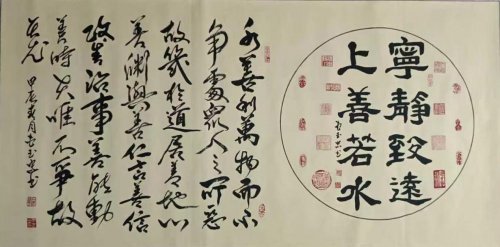 寧靜致遠
上善若水
水善利萬物而不
爭處眾人之所惡
故幾於道居善地心
善淵與善仁言善信
政善治事善能動
善時夫唯不爭故
无尤
甲辰